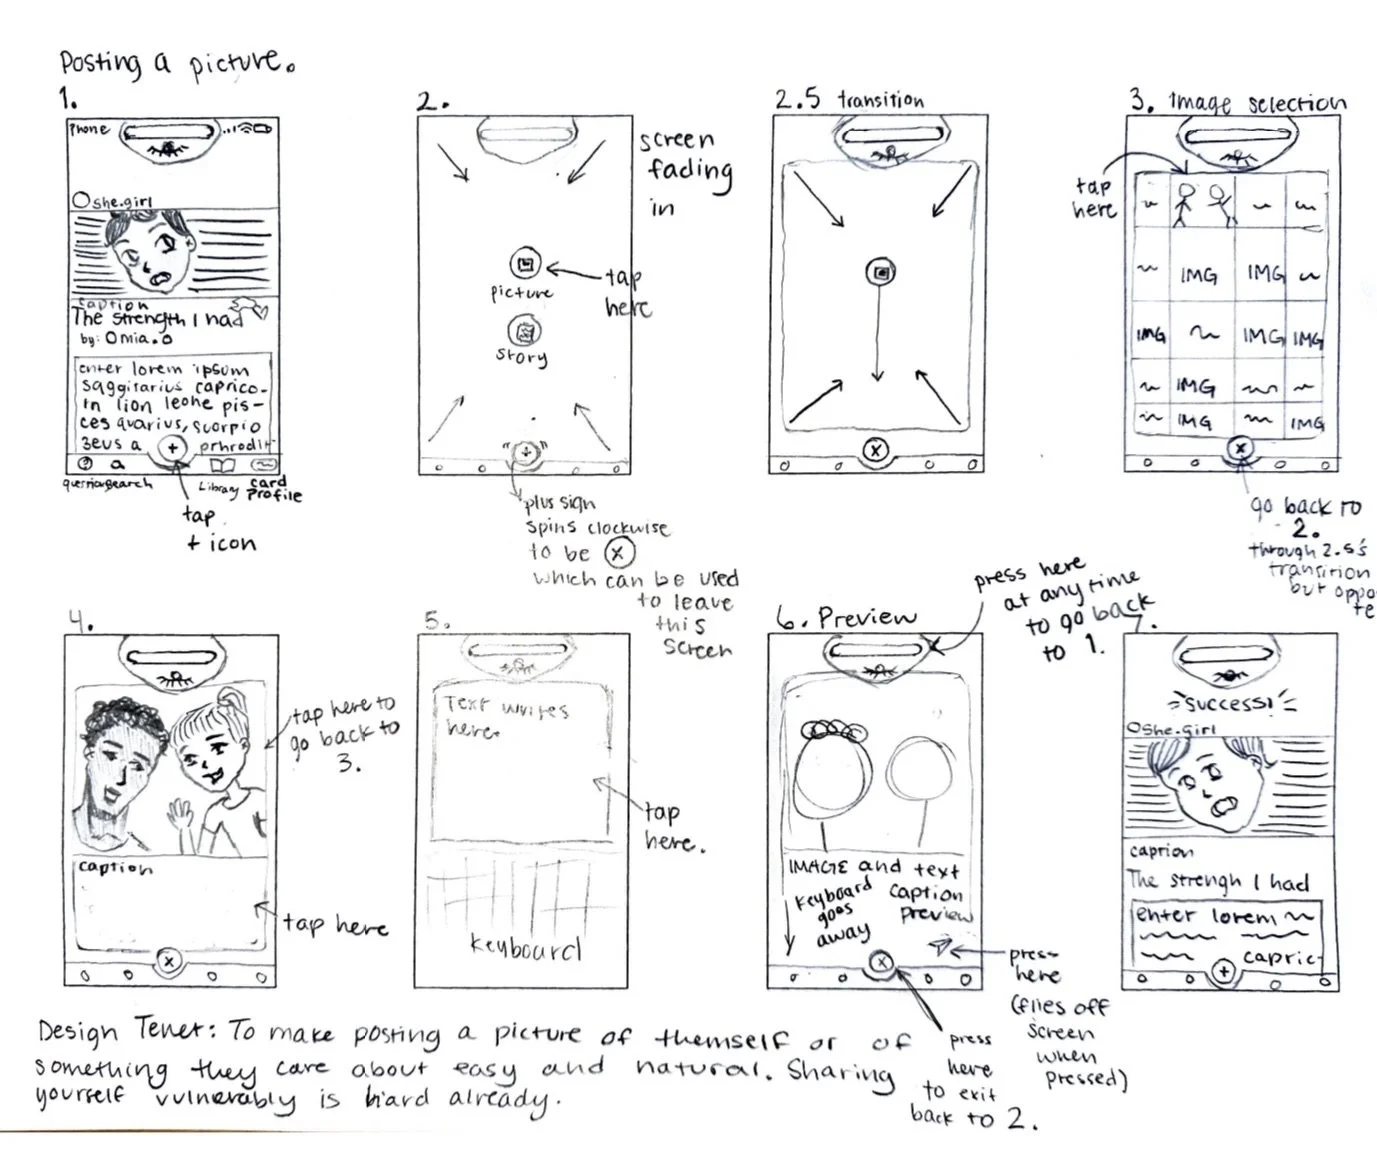 Posting a picture.
1.
Phone
she.girl
caption
The strength I had
by: Omia.o
enter lorem ipsum
saggitarius caprico-
rn lion leohe pis-
ces quarius, scorpio
zeus a
prhrodit
search
Library
card
profile
tap
+ icon
2.
screen
fading
in
picture
tap
here
story
plus sign
spins clockwise
to be (x)
which can be used
to leave
this
screen
2.5 transition
3. Image selection
tap
here
IMG IMG
IMG IMG IMG
IMG
IMG IMG
go back to
2.
through 2.5's
transition
but oppo
te
4.
tap here to
go back to
3.
caption
tap here
5.
Text writes
here.
tap
here.
keyboard
6. Preview
press here
at any time
to go back
to 1.
IMAGE and text
caption
preview
keyboard
goes
away
press
here
(flies off
screen
when
pressed)
press
here
to exit
back to 2.
7.
success!
She.girl
caprion
The strengh I had
enter lorem
capric-
Design Tenet: To make posting a picture of themself or of
something they care about easy and natural. Sharing
yourself vulnerably is hard already.